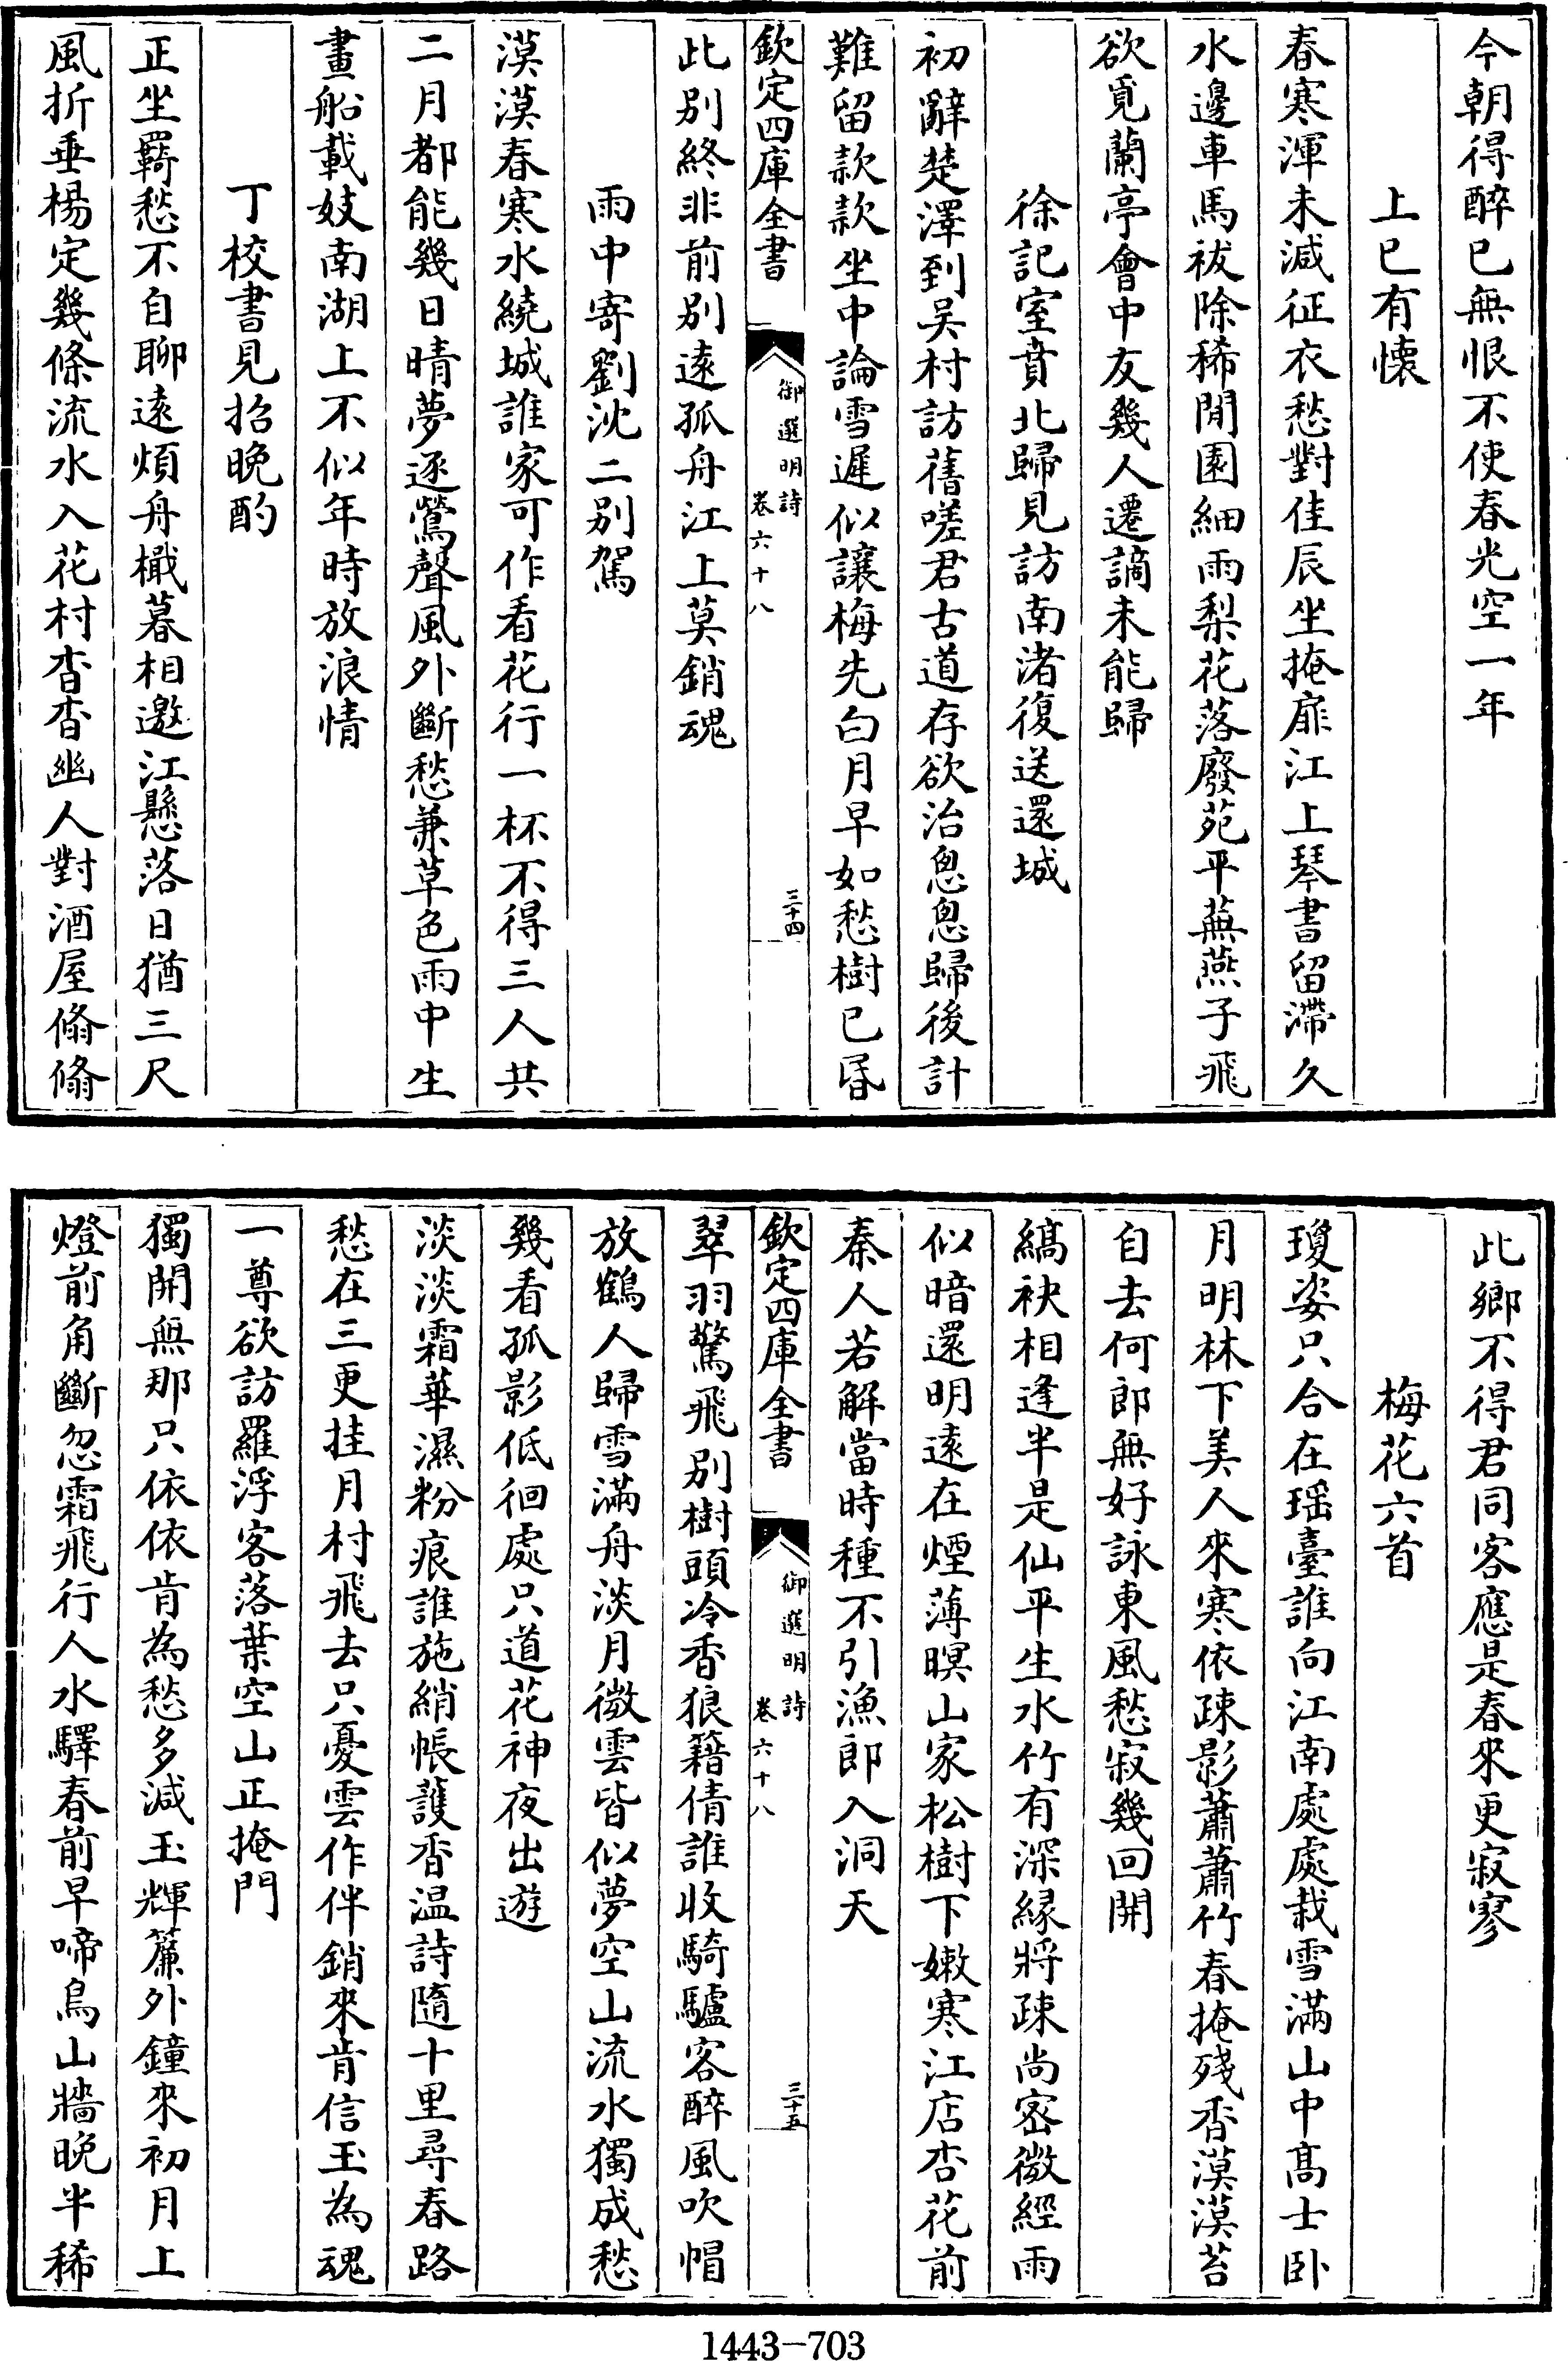 今朝得醉已無恨不使春光空一年
上巳有懐
春寒渾未減征衣愁對佳辰坐掩扉江上琴書留滯久
水邊車馬祓除稀閒園細雨梨花落廢苑平蕪燕子飛
欲覓蘭亭會中友幾人遷謫未能歸
徐記室賁北歸見訪南渚復送還城
初辭楚澤到吴村訪舊嗟君古道存欲治怱怱歸後計
難留款款坐中論雪遲似讓梅先白月早如愁樹已昬
欽定四庫全書
御選明詩
卷六十八
三十四
此別終非前別遠孤舟江上莫銷魂
雨中寄劉沈二別駕
漠漠春寒水繞城誰家可作看花行一杯不得三人共
二月都能幾日晴夢逐鶯聲風外斷愁兼草色雨中生
畫船載妓南湖上不似年時放浪情
丁校書見招晚酌
正坐羇愁不自聊遠煩舟檝暮相邀江懸落日猶三尺
風折垂楊定幾條流水入花村杳杳幽人對酒屋翛翛
此鄉不得君同客應是春來更寂寥
梅花六首
瓊姿只合在瑶臺誰向江南處處栽雪滿山中髙士卧
月明林下美人來寒依疎影蕭蕭竹春掩殘香漠漠苔
自去何郎無好詠東風愁寂幾回開
縞袂相逢半是仙平生水竹有深縁將疎尚密微經雨
似暗還明遠在煙薄暝山家松樹下嫩寒江店杏花前
秦人若解當時種不引漁郎入洞天
欽定四庫全書
御選明詩
卷六十八
三十五
翠羽驚飛別樹頭冷香狼籍倩誰收騎驢客醉風吹帽
放鶴人歸雪滿舟淡月微雲皆似夢空山流水獨成愁
幾看孤影低徊處只道花神夜出遊
淡淡霜華濕粉痕誰施綃帳護香温詩隨十里尋春路
愁在三更挂月村飛去只憂雲作伴銷來肯信玉為魂
一尊欲訪羅浮客落葉空山正掩門
獨開無那只依依肯為愁多減玉輝簾外鐘來初月上
燈前角斷忽霜飛行人水驛春前早啼鳥山牆晚半稀
1443-703